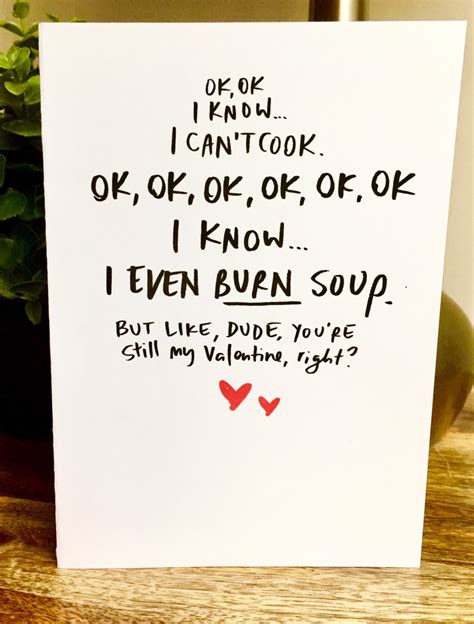 OK, OK
I KNOW...
I CAN'T COOK.
OK, OK, OK, OK, OK, OK
I KNOW...
I EVEN BURN SOUP.
BUT LIKE, DUDE, YOU'RE
still my Valentine, right?